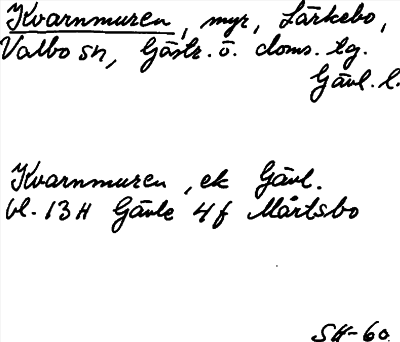 Kvarnmuren, myr, Lärkebo,
Valbo sn, Gästr. ö. doms. tg.
Gävl. l.
Kvarnmuren, ek Gävl.
bl. 13H Gävle 4f Mårtsbo
SH-60